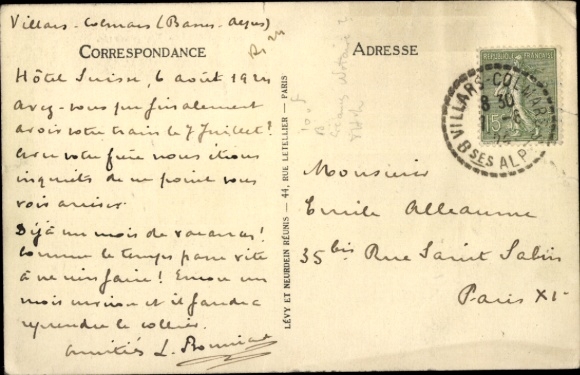 Villars-Colmars (Basses-Alpes)
CORRESPONDANCE
ADRESSE
Hôtel Suisse, 6 août 1924
Avez-vous pu finalement
avoir votre train le 7 Juillet?
votre frère nous étions
inquiets de ne point vous
voir arriver.
Déjà un mois de vacances!
Comme le temps passe vite
à ne rien faire! Encore un
mois environ et il faudra
reprendre le collier.
Amitiés L.
LÉVY ET NEURDEIN RÉUNIS — 44, RUE LETELLIER — PARIS
RÉPUBLIQUE FRANÇAISE
15
VILLARS-COLMARS
8 30
BSES ALPES
Monsieur
Emile Alleaume
35 bis Rue Saint Sabin
Paris XI